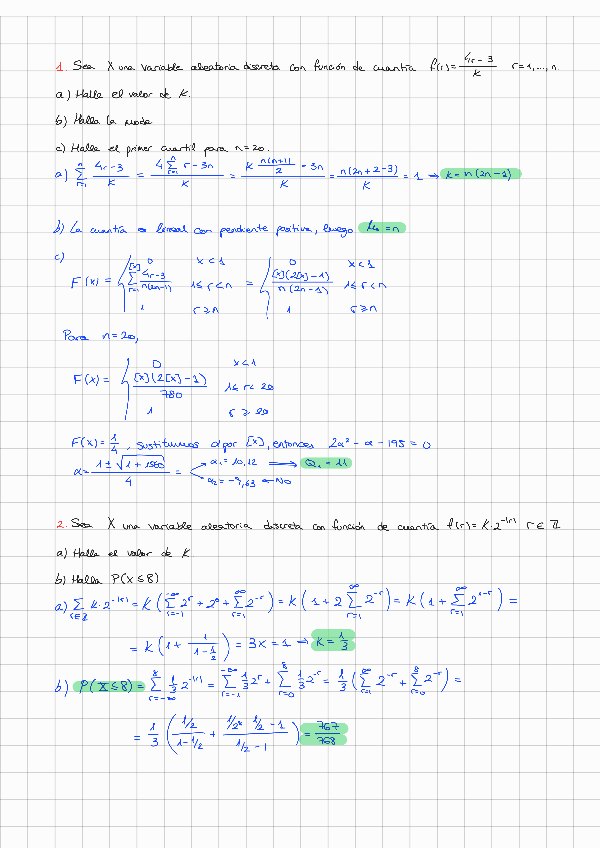 1. Sea X una variable aleatoria discreta con función de cuantía f(r) = (4r-3)/K r=1,...,n.
a) Halla el valor de K.
b) Halla la moda
c) Halla el primer cuartil para n=20.
a) ∑_{r=1}^{n} (4r-3)/K = (4 ∑_{r=1}^{n} r - 3n)/K = (K n(n+1)/2 - 3n)/K = n(2n+2-3)/K = 1 → K = n(2n-1)
b) La cuantía es lineal con pendiente positiva, luego M₀ = n
c)
F(x) = { 0 x<1 ; ∑_{r=1}^{[x]} (4r-3)/(n(2n-1)) 1≤r<n ; 1 r≥n = { 0 x<1 ; [x](2[x]-1)/(n(2n-1)) 1≤r<n ; 1 r≥n
Para n=20,
F(x) = { 0 x<1 ; [x](2[x]-1)/780 1≤r<20 ; 1 r≥20
F(x) = 1/4, sustituimos α por [x], entonces 2α² - α - 195 = 0
α = (1±√(1+1560))/4 = α₁ = 10,12 → Q₁ = 11
α₂ = -9,63 ← No
2. Sea X una variable aleatoria discreta con función de cuantía f(r) = K·2^{-|r|} r ∈ ℤ
a) Halla el valor de K
b) Halla P(X≤8)
a) ∑_{r∈ℤ} K·2^{-|r|} = K(∑_{r=-1}^{-∞} 2^r + 2^0 + ∑_{r=1}^{∞} 2^{-r}) = K(1 + 2 ∑_{r=1}^{∞} 2^{-r}) = K(1 + ∑_{r=1}^{∞} 2^{1-r}) =
= K(1 + 1/(1-1/2)) = 3K = 1 → K = 1/3
b) P(X≤8) = ∑_{r=-∞}^{8} 1/3 2^{-|r|} = ∑_{r=-1}^{-∞} 1/3 2^r + ∑_{r=0}^{8} 1/3 2^{-r} = 1/3 (∑_{r=1}^{∞} 2^{-r} + ∑_{r=0}^{8} 2^{-r}) =
= 1/3 ((1/2)/(1-1/2) + (1/2⁸ · 1/2 - 1)/(1/2 - 1)) = 767/768